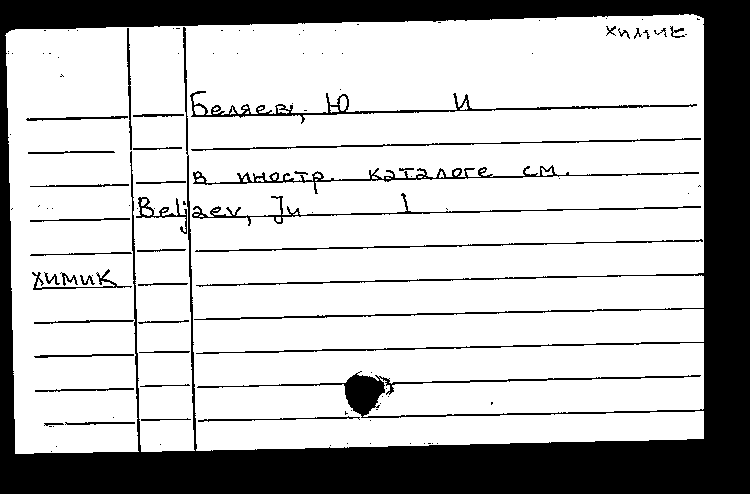 химик
Беляев, Ю И
в иностр. каталоге см.
Beljaev, Ju I
химик